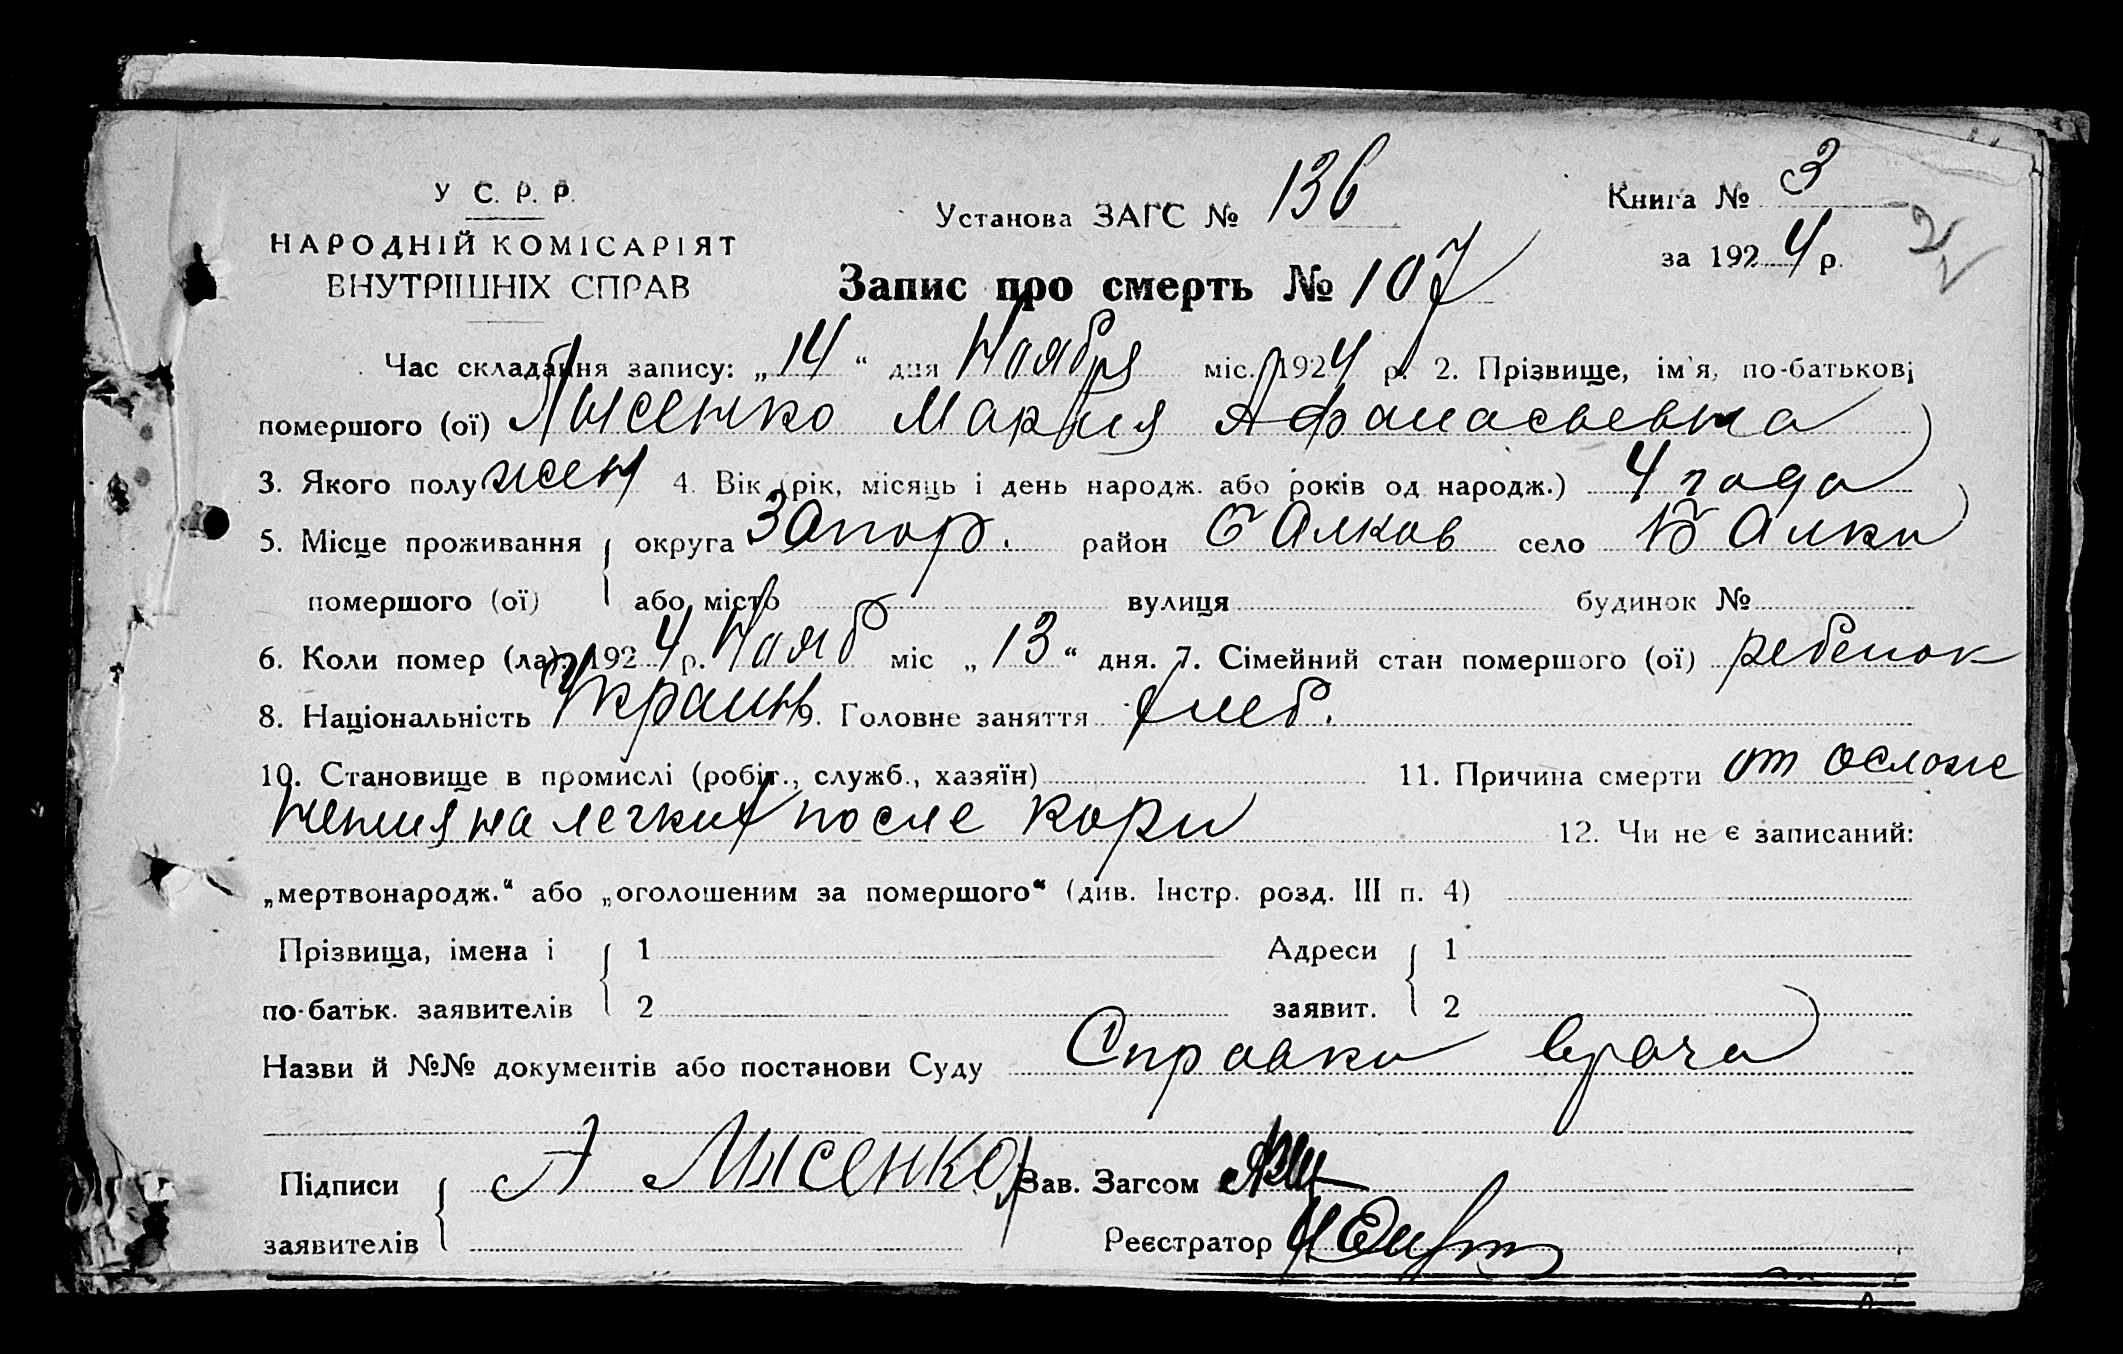 У С. Р. Р.
Установа ЗАГС № 136
Книга № 3
НАРОДНІЙ КОМІСАРІЯТ
за 1924 р.
ВНУТРІШНІХ СПРАВ
Запис про смерть № 107
Час складання запису: „14“ дня Ноября міс. 1924 р. 2. Прізвище, ім'я, по-батькові
помершого (ої) Лысенко Мария Афанасьевна
3. Якого полу жен 4. Вік (рік, місяць і день народж. або років од народж.) 4 года
5. Місце проживання округа Запор. район Балков село Балки
помершого (ої) або місто вулиця будинок №
6. Коли помер (ла): 1924 р. Нояб міс „13“ дня. 7. Сімейний стан помершого (ої) ребенок
8. Національність Украин. Головне заняття хлеб.
10. Становище в промислі (робіт., служб., хазяїн) 11. Причина смерти от осложе
нения на легких после кори 12. Чи не є записаний:
„мертвонародж.“ або „оголошеним за помершого“ (див. Інстр. розд. III п. 4)
Прізвища, імена і 1 Адреси 1
по-батьк. заявителів 2 заявит. 2
Назви й №№ документів або постанови Суду Справки врача
Підписи А Лысенко Зав. Загсом
заявителів Реєстратор